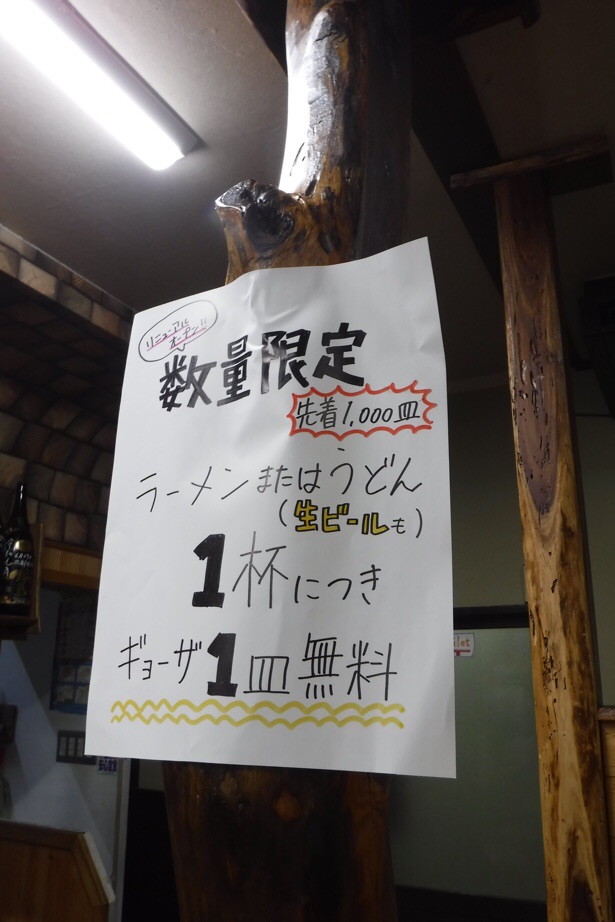 リニューアル
オープン!!
数量限定
先着1,000皿
ラーメンまたはうどん
(生ビールも)
1杯につき
ギョーザ1皿無料